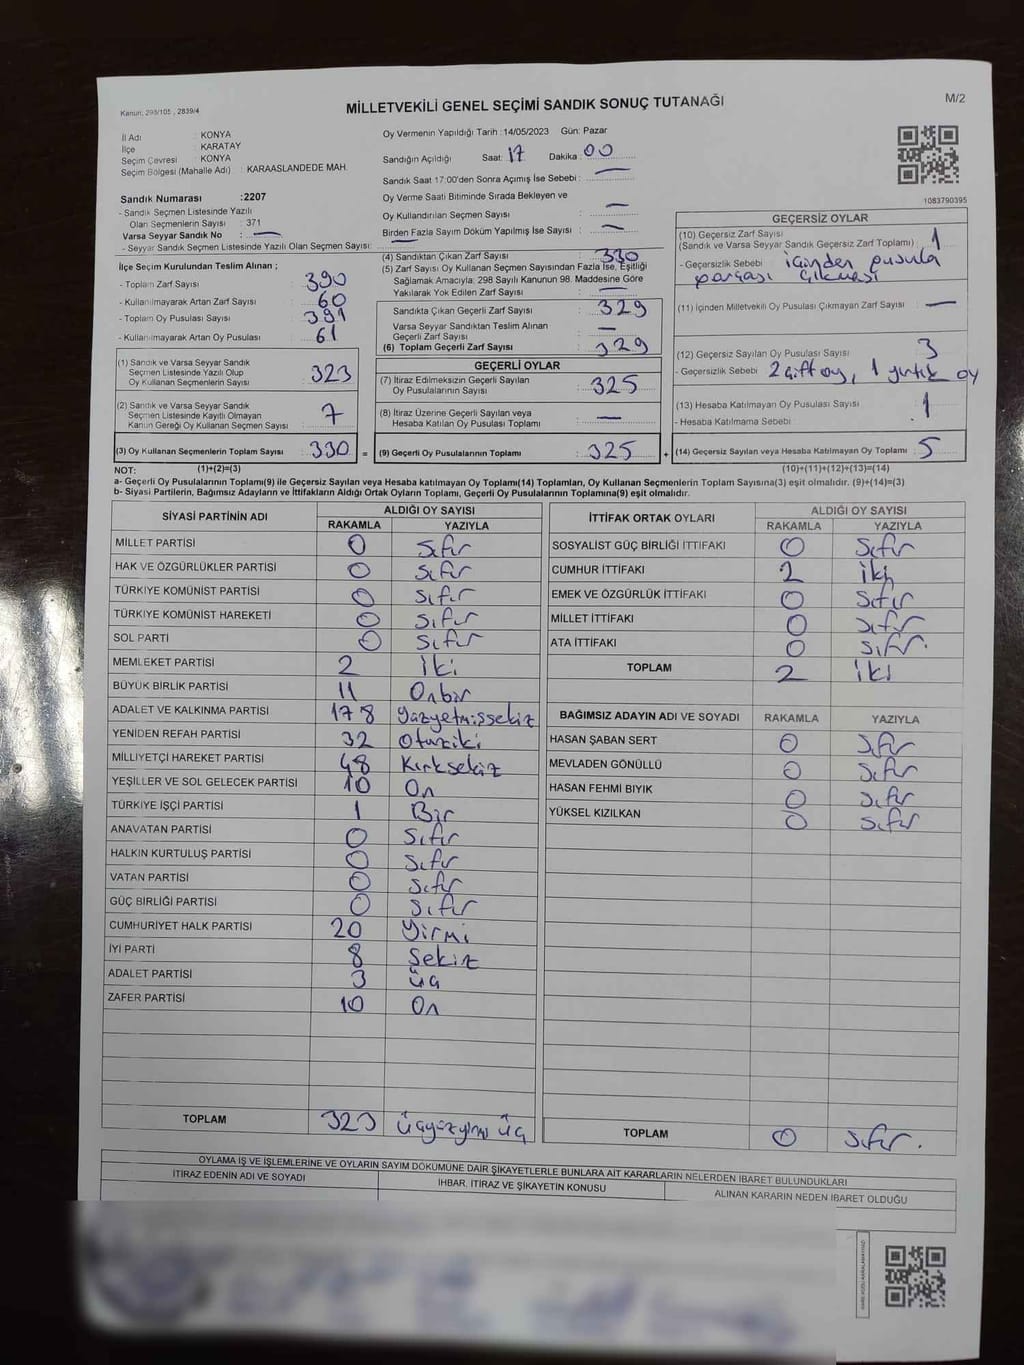 Kanun: 298/105 , 2839/4
MİLLETVEKİLİ GENEL SEÇİMİ SANDIK SONUÇ TUTANAĞI
M/2
İl Adı : KONYA
İlçe : KARATAY
Seçim Çevresi : KONYA
Seçim Bölgesi (Mahalle Adı) : KARAASLANDEDE MAH.
Sandık Numarası :2207
- Sandık Seçmen Listesinde Yazılı
Olan Seçmenlerin Sayısı : 371
Varsa Seyyar Sandık No : —
- Seyyar Sandık Seçmen Listesinde Yazılı Olan Seçmen Sayısı: —
Oy Vermenin Yapıldığı Tarih : 14/05/2023 Gün: Pazar
Sandığın Açıldığı Saat: 17 Dakika : 00
Sandık Saat 17:00'den Sonra Açımış İse Sebebi : —
Oy Verme Saati Bitiminde Sırada Bekleyen ve
Oy Kullandırılan Seçmen Sayısı : —
Birden Fazla Sayım Döküm Yapılmış İse Sayısı : —
1083790395
İlçe Seçim Kurulundan Teslim Alınan ;
- Toplam Zarf Sayısı : 390
- Kullanılmayarak Artan Zarf Sayısı : 60
- Toplam Oy Pusulası Sayısı : 391
- Kullanılmayarak Artan Oy Pusulası : 61
(1) Sandık ve Varsa Seyyar Sandık
Seçmen Listesinde Yazılı Olup
Oy Kullanan Seçmenlerin Sayısı : 323
(2) Sandık ve Varsa Seyyar Sandık
Seçmen Listesinde Kayıtlı Olmayan
Kanun Gereği Oy Kullanan Seçmen Sayısı : 7
(3) Oy Kullanan Seçmenlerin Toplam Sayısı : 330 =
(4) Sandıktan Çıkan Zarf Sayısı : 330
(5) Zarf Sayısı Oy Kullanan Seçmen Sayısından Fazla İse, Eşitliği
Sağlamak Amacıyla; 298 Sayılı Kanunun 98. Maddesine Göre
Yakılarak Yok Edilen Zarf Sayısı : —
Sandıkta Çıkan Geçerli Zarf Sayısı : 329
Varsa Seyyar Sandıktan Teslim Alınan
Geçerli Zarf Sayısı : —
(6) Toplam Geçerli Zarf Sayısı : 329
GEÇERLİ OYLAR
(7) İtiraz Edilmeksizin Geçerli Sayılan
Oy Pusulalarının Sayısı : 325
(8) İtiraz Üzerine Geçerli Sayılan veya
Hesaba Katılan Oy Pusulası Toplamı : —
(9) Geçerli Oy Pusulalarının Toplamı : 325 +
GEÇERSİZ OYLAR
(10) Geçersiz Zarf Sayısı
(Sandık ve Varsa Seyyar Sandık Geçersiz Zarf Toplamı) : 1
- Geçersizlik Sebebi : içinden pusula
parçası çıkması
(11) İçinden Milletvekili Oy Pusulası Çıkmayan Zarf Sayısı : —
(12) Geçersiz Sayılan Oy Pusulası Sayısı : 3
- Geçersizlik Sebebi : 2 çift oy, 1 yırtık oy
(13) Hesaba Katılmayan Oy Pusulası Sayısı : 1
- Hesaba Katılmama Sebebi :
(14) Geçersiz Sayılan veya Hesaba Katılmayan Oy Toplamı : 5
NOT: (1)+(2)=(3) (10)+(11)+(12)+(13)=(14)
a- Geçerli Oy Pusulalarının Toplamı(9) ile Geçersiz Sayılan veya Hesaba katılmayan Oy Toplamı(14) Toplamları, Oy Kullanan Seçmenlerin Toplam Sayısına(3) eşit olmalıdır. (9)+(14)=(3)
b- Siyasi Partilerin, Bağımsız Adayların ve İttifakların Aldığı Ortak Oyların Toplamı, Geçerli Oy Pusulalarının Toplamına(9) eşit olmalıdır.
SİYASİ PARTİNİN ADI ALDIĞI OY SAYISI
RAKAMLA YAZIYLA
MİLLET PARTİSİ 0 Sıfır
HAK VE ÖZGÜRLÜKLER PARTİSİ 0 Sıfır
TÜRKİYE KOMÜNİST PARTİSİ 0 Sıfır
TÜRKİYE KOMÜNİST HAREKETİ 0 Sıfır
SOL PARTİ 0 Sıfır
MEMLEKET PARTİSİ 2 İki
BÜYÜK BİRLİK PARTİSİ 11 Onbir
ADALET VE KALKINMA PARTİSİ 178 Yüzyetmişsekiz
YENİDEN REFAH PARTİSİ 32 Otuziki
MİLLİYETÇİ HAREKET PARTİSİ 48 Kırksekiz
YEŞİLLER VE SOL GELECEK PARTİSİ 10 On
TÜRKİYE İŞÇİ PARTİSİ 1 Bir
ANAVATAN PARTİSİ 0 Sıfır
HALKIN KURTULUŞ PARTİSİ 0 Sıfır
VATAN PARTİSİ 0 Sıfır
GÜÇ BİRLİĞİ PARTİSİ 0 Sıfır
CUMHURİYET HALK PARTİSİ 20 Yirmi
İYİ PARTİ 8 Sekiz
ADALET PARTİSİ 3 üç
ZAFER PARTİSİ 10 On
TOPLAM 323 üçyüzyirmi üç
İTTİFAK ORTAK OYLARI ALDIĞI OY SAYISI
RAKAMLA YAZIYLA
SOSYALİST GÜÇ BİRLİĞİ İTTİFAKI 0 Sıfır
CUMHUR İTTİFAKI 2 İki
EMEK VE ÖZGÜRLÜK İTTİFAKI 0 Sıfır
MİLLET İTTİFAKI 0 Sıfır
ATA İTTİFAKI 0 Sıfır.
TOPLAM 2 İki
BAĞIMSIZ ADAYIN ADI VE SOYADI RAKAMLA YAZIYLA
HASAN ŞABAN SERT 0 Sıfır
MEVLADEN GÖNÜLLÜ 0 Sıfır
HASAN FEHMİ BIYIK 0 Sıfır
YÜKSEL KIZILKAN 0 Sıfır
TOPLAM 0 Sıfır.
OYLAMA İŞ VE İŞLEMLERİNE VE OYLARIN SAYIM DÖKÜMÜNE DAİR ŞİKAYETLERLE BUNLARA AİT KARARLARIN NELERDEN İBARET BULUNDUKLARI
İTİRAZ EDENİN ADI VE SOYADI İHBAR, İTİRAZ VE ŞİKAYETİN KONUSU ALINAN KARARIN NEDEN İBARET OLDUĞU